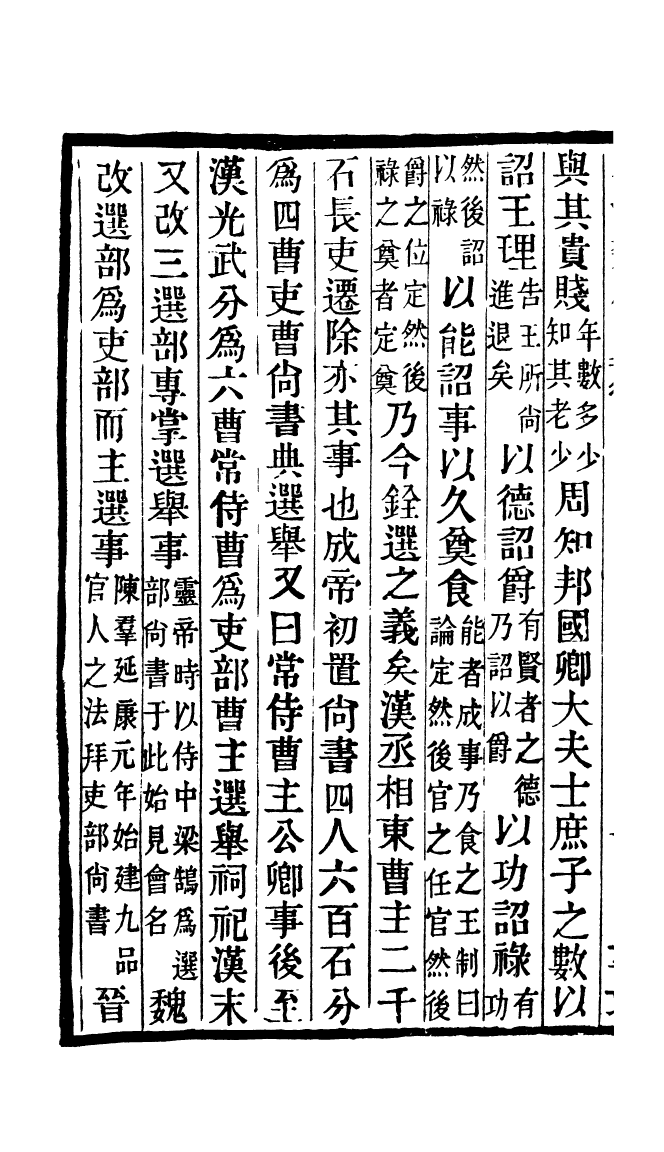 與其貴賤年數多少知其老少周知邦國卿大夫士庶子之數以
詔王理告王所尙進退矣以德詔爵有賢者之德乃詔以爵以功詔祿有功
然後詔以祿以能詔事以久奠食能者成事乃食之王制曰論定然後官之任官然後
爵之位定然後祿之奠者定奠乃今銓選之義矣漢丞相東曹主二千
石長吏遷除亦其事也成帝初置尙書四人六百石分
爲四曹吏曹尙書典選舉又曰常侍曹主公卿事後至
漢光武分爲六曹常侍曹爲吏部曹主選舉祠祀漢末
又改三選部專掌選舉事靈帝時以侍中梁鵠爲選部尙書于此始見會名魏
改選部爲吏部而主選事陳羣延康元年始建九品官人之法拜吏部尙書晉